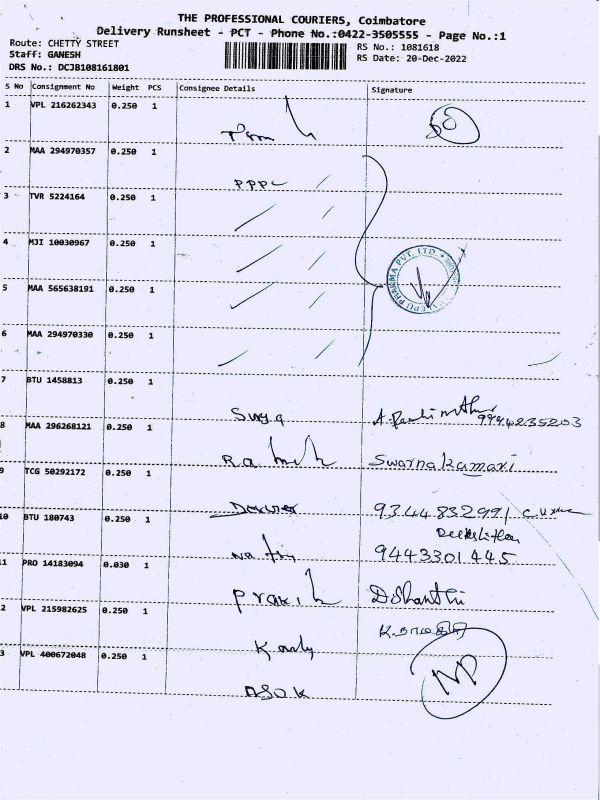 THE PROFESSIONAL COURIERS, Coimbatore
Delivery Runsheet - PCT - Phone No.:0422-3505555 - Page No.:1
Route: CHETTY STREET
Staff: GANESH
DRS No.: DCJB108161801
RS No.: 1081618
RS Date: 20-Dec-2022
S No Consignment No Weight PCS Consignee Details Signature
1 VPL 216262343 0.250 1
2 MAA 294970357 0.250 1
PPPL
3 TVR 5224164 0.250 1
4 MJI 10030967 0.250 1
PHARMA PVT. LTD.
5 MAA 565638191 0.250 1
6 MAA 294970330 0.250 1
7 BTU 1458813 0.250 1
Surya 9944235203
8 MAA 296268121 0.250 1
Ramesh Swarnakamari
9 TCG 50292172 0.250 1
9344832991
10 BTU 180743 0.250 1
9443301445
11 PRO 14183094 0.030 1
D Shanthi
2 VPL 215982625 0.250 1
K.
3 VPL 400672048 0.250 1
ASOK